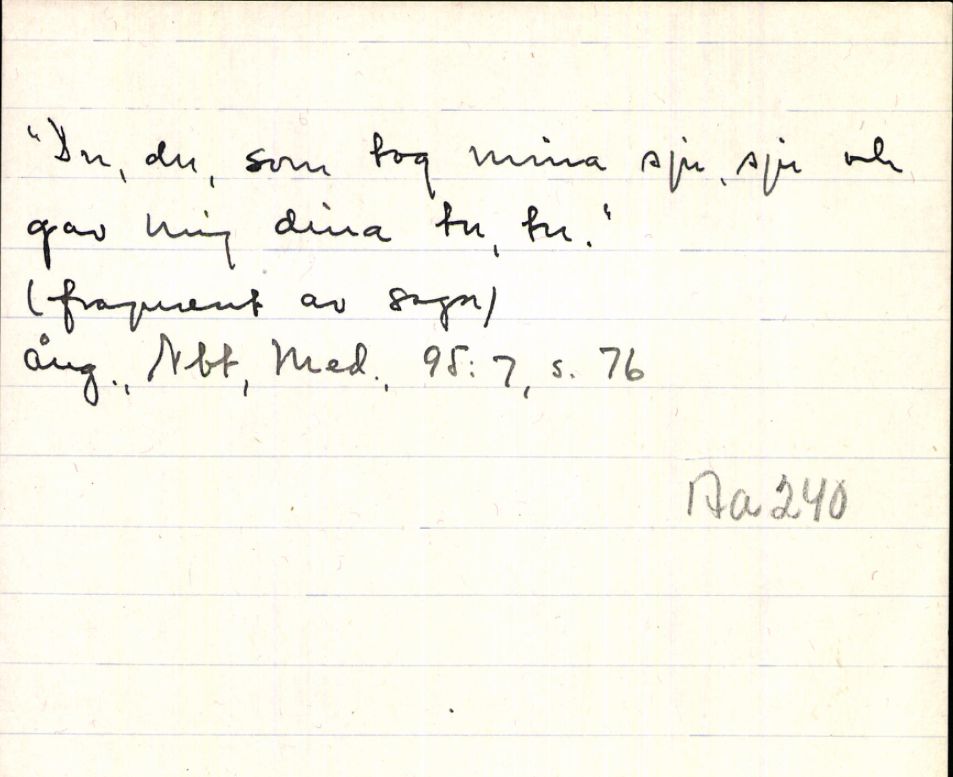 "Du, du, som tog mina sju, sju och
gav mig dina tu, tu."
(fragment av sagn)
Ång., Nbt, Med., 98:7, s. 76
Aa 240